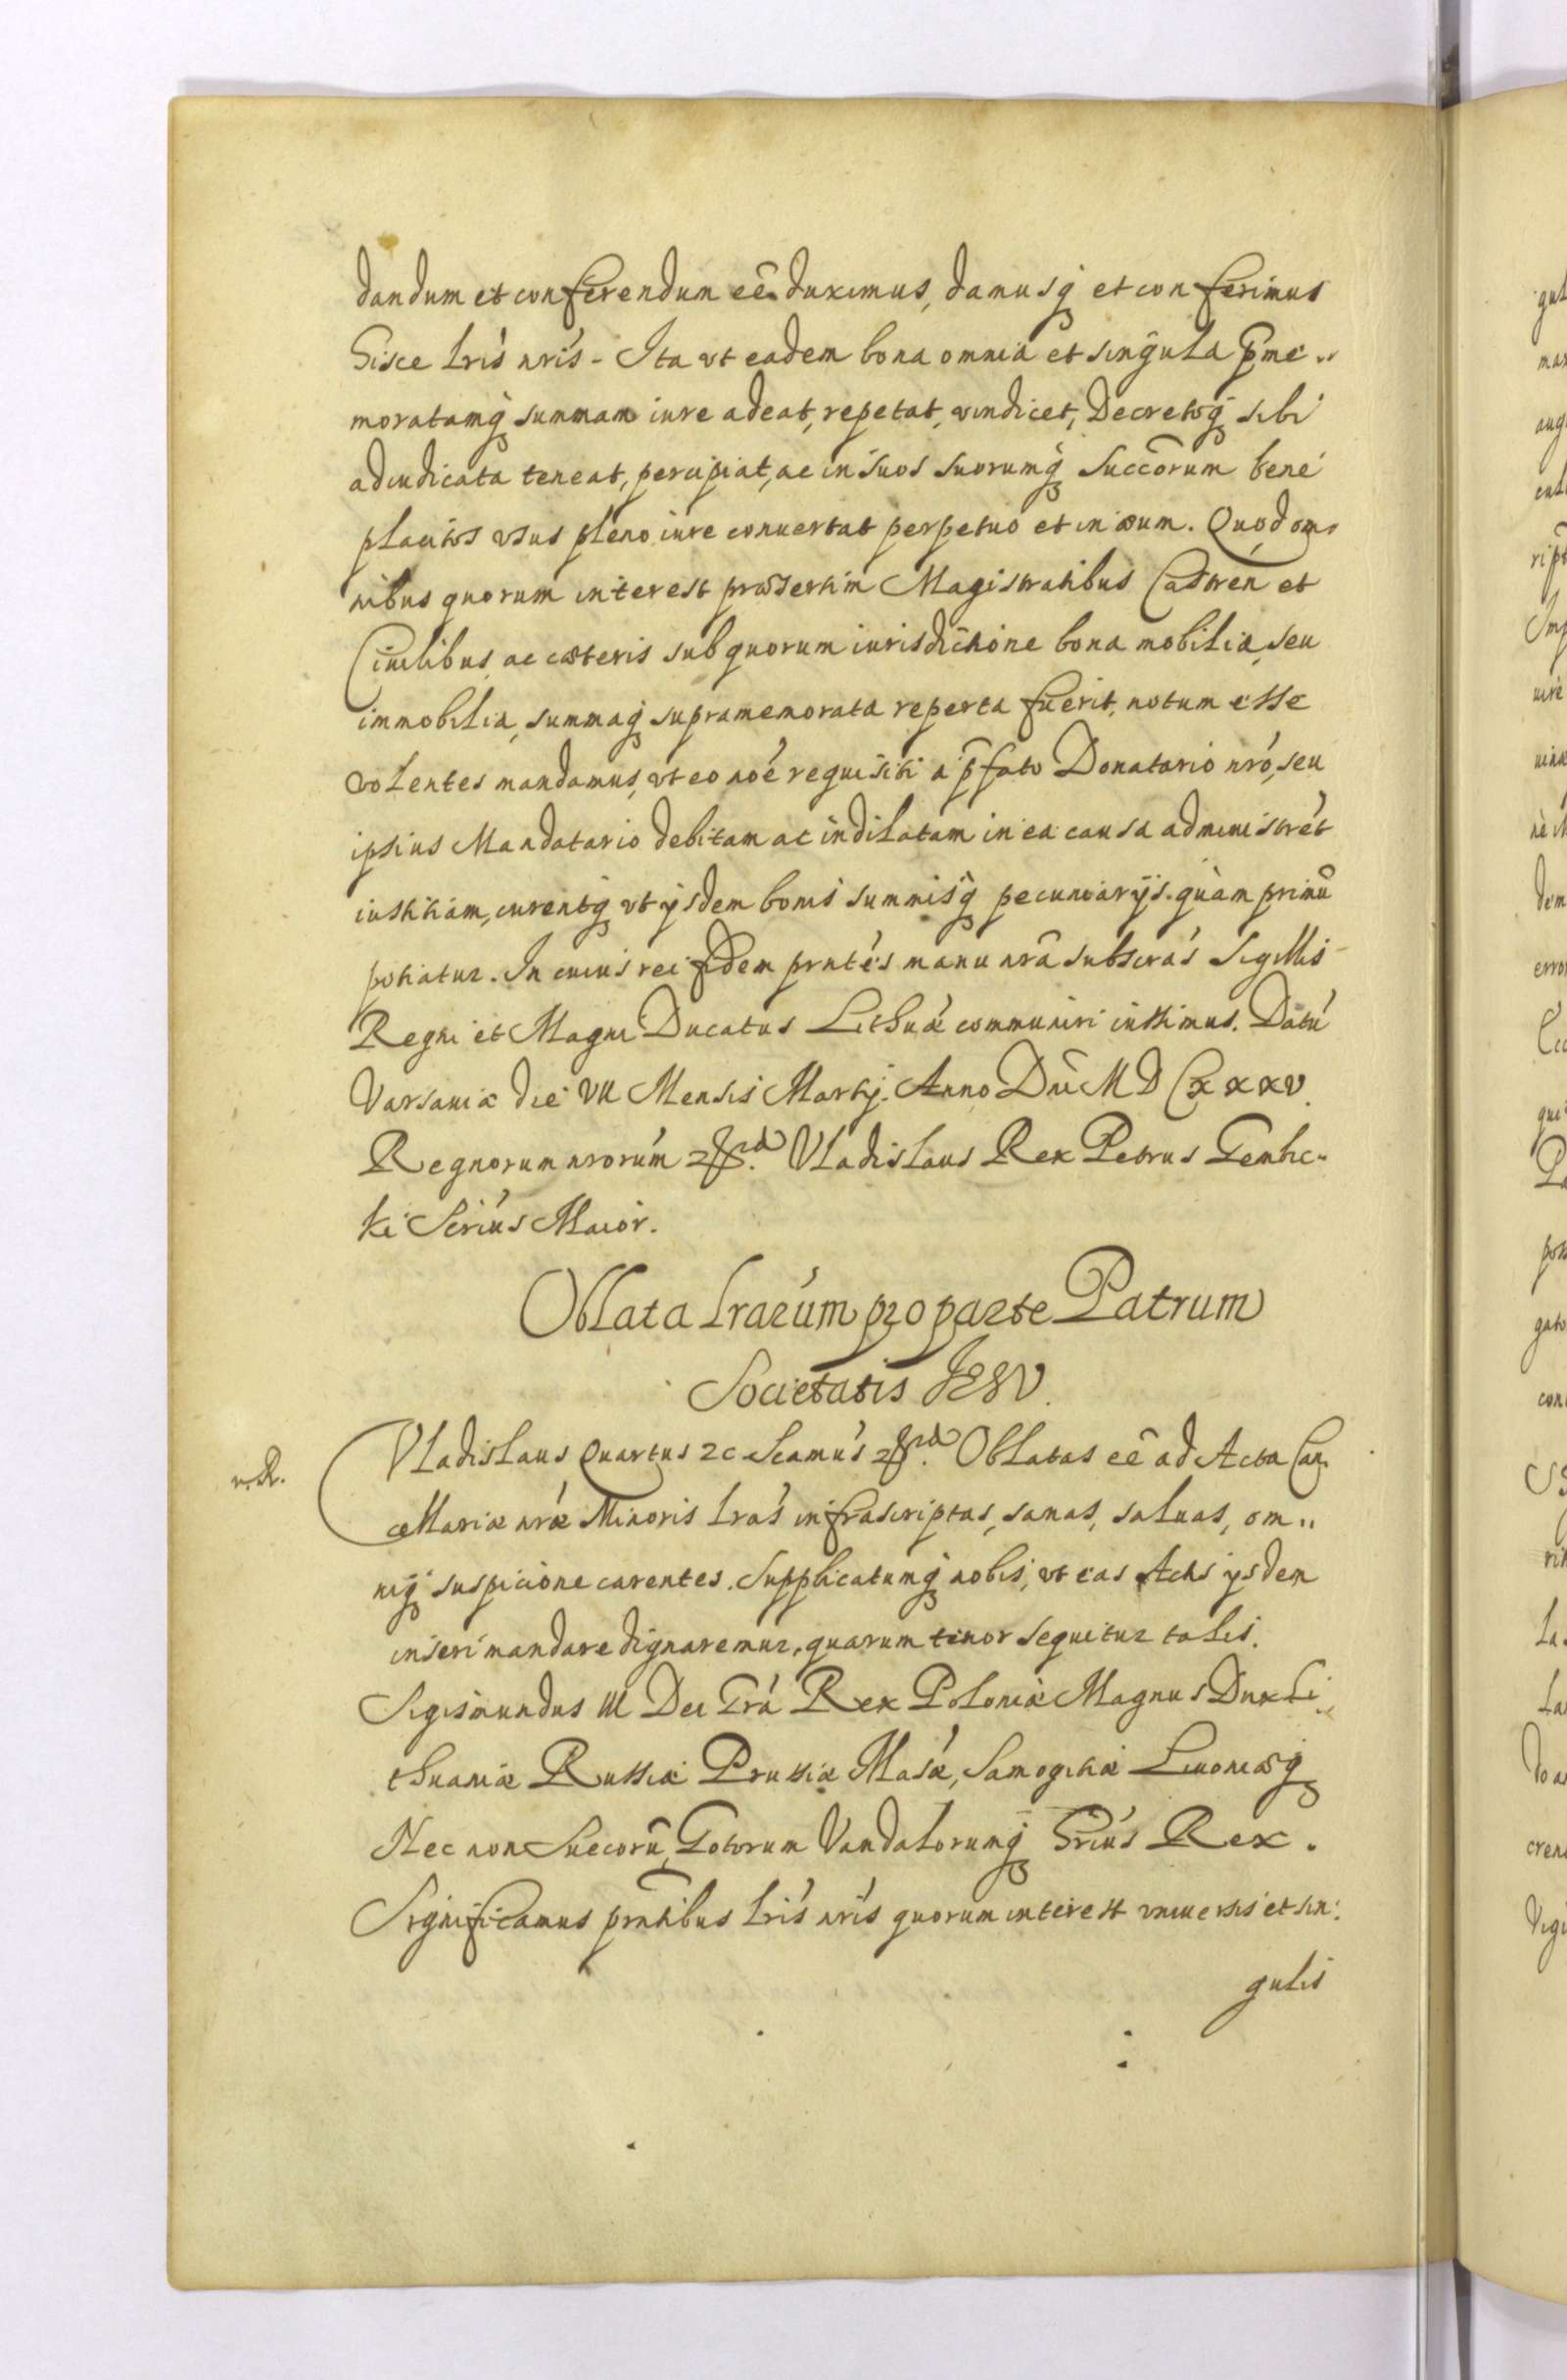 dandum et conferendum eê duximus, damusq̃ et conferimus
hisce lrís nrís - Ita vt eadem bona omnia et singula p̃me..
moratamq̃ summam iure adeat, repetat, vindicet, Decretoq̃ sibi
adiudicata teneat, percipiat, ac in suos suorumq̃ Succõrum bene
placitos vsus pleno iure conuertat perpetuo et in æuum. Quod om,
nibus quorum interest præsertim Magistratibus Castren et
Ciuilibus, ac cæteris sub quorum iurisdictione bona mobilia, seu
immobilia, summaq̃ supramemorata reperta fuerit, notum esse
volentes mandamus, vt eo noé requisiti a p̃fato Donatario nró, seu
ipsius Mandatario debitam ac indilatam in ea causa administrét
iustitiam, curentq̃ vt ijsdem bonis summisq̃ pecuniarijs quàm primũ
potiatur. In cuius rei fidem prnté s manu nrâ subscrás Sigillis
Regni et Magni Ducatus Lithuæ communiri iussimus. Datú
Varsauiæ die VII Mensis Martij. Anno Dñi M D CXXXV.
Regnorum nrorúm &rd. Vladislaus Rex Petrus Gembic-
ki Scriús Maior.
Oblata lrarúm pro parte Patrum
Societatis JESV.
v. R.
Vladislaus Quartus &c Sciamús &rd. Oblatas eê ad Acta Can,
cellariæ nræ Minoris lrás infrascriptas, sanas, saluas, om..
niq̃ suspicione carentes. Supplicatumq̃ nobis, vt eas Actis ijsdem
inseri mandare dignaremur, quarum tenor sequitur talis.
Sigismundus III Dei Grá Rex Poloniæ Magnus Dux Li..
thuaniæ Russiæ Prussiæ Masæ, Samogitiæ Liuoniæq̃
Nec non Suecorũ, Gotorum Vandalorumq̃ hriús Rex.
Significamus prntibus lrís nrís quorum interest vniuersis et sin:
gulis